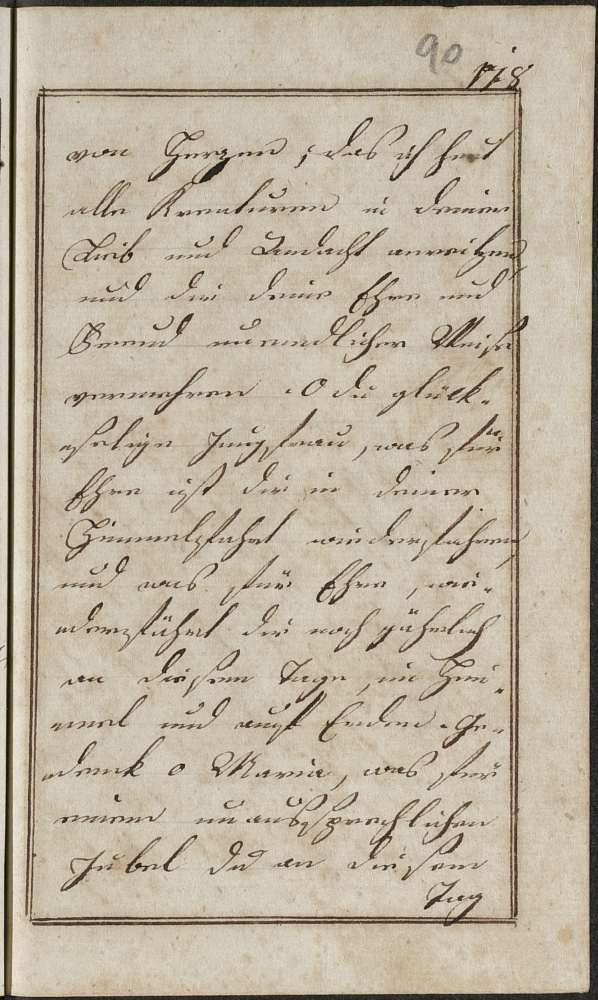 90
178
von Herzen; das ich heut
alle Kreaturen in deiner
Lieb und Andacht anreitzen,
und dir deine Ehre und
Freud unendlicher Weise
vermehren. O du glück-
selige Jungfrau, was für
Ehre ist dir in deiner
Himmelsfahrt wiederfahren,
und was für Ehre, wie-
derfährt dir noch jährlich
an diesem Tage, im Him-
mel und auf Erden. Ge-
denk o Maria, was für
einen unaussprechlichen
Jubel du an diesem
Tag